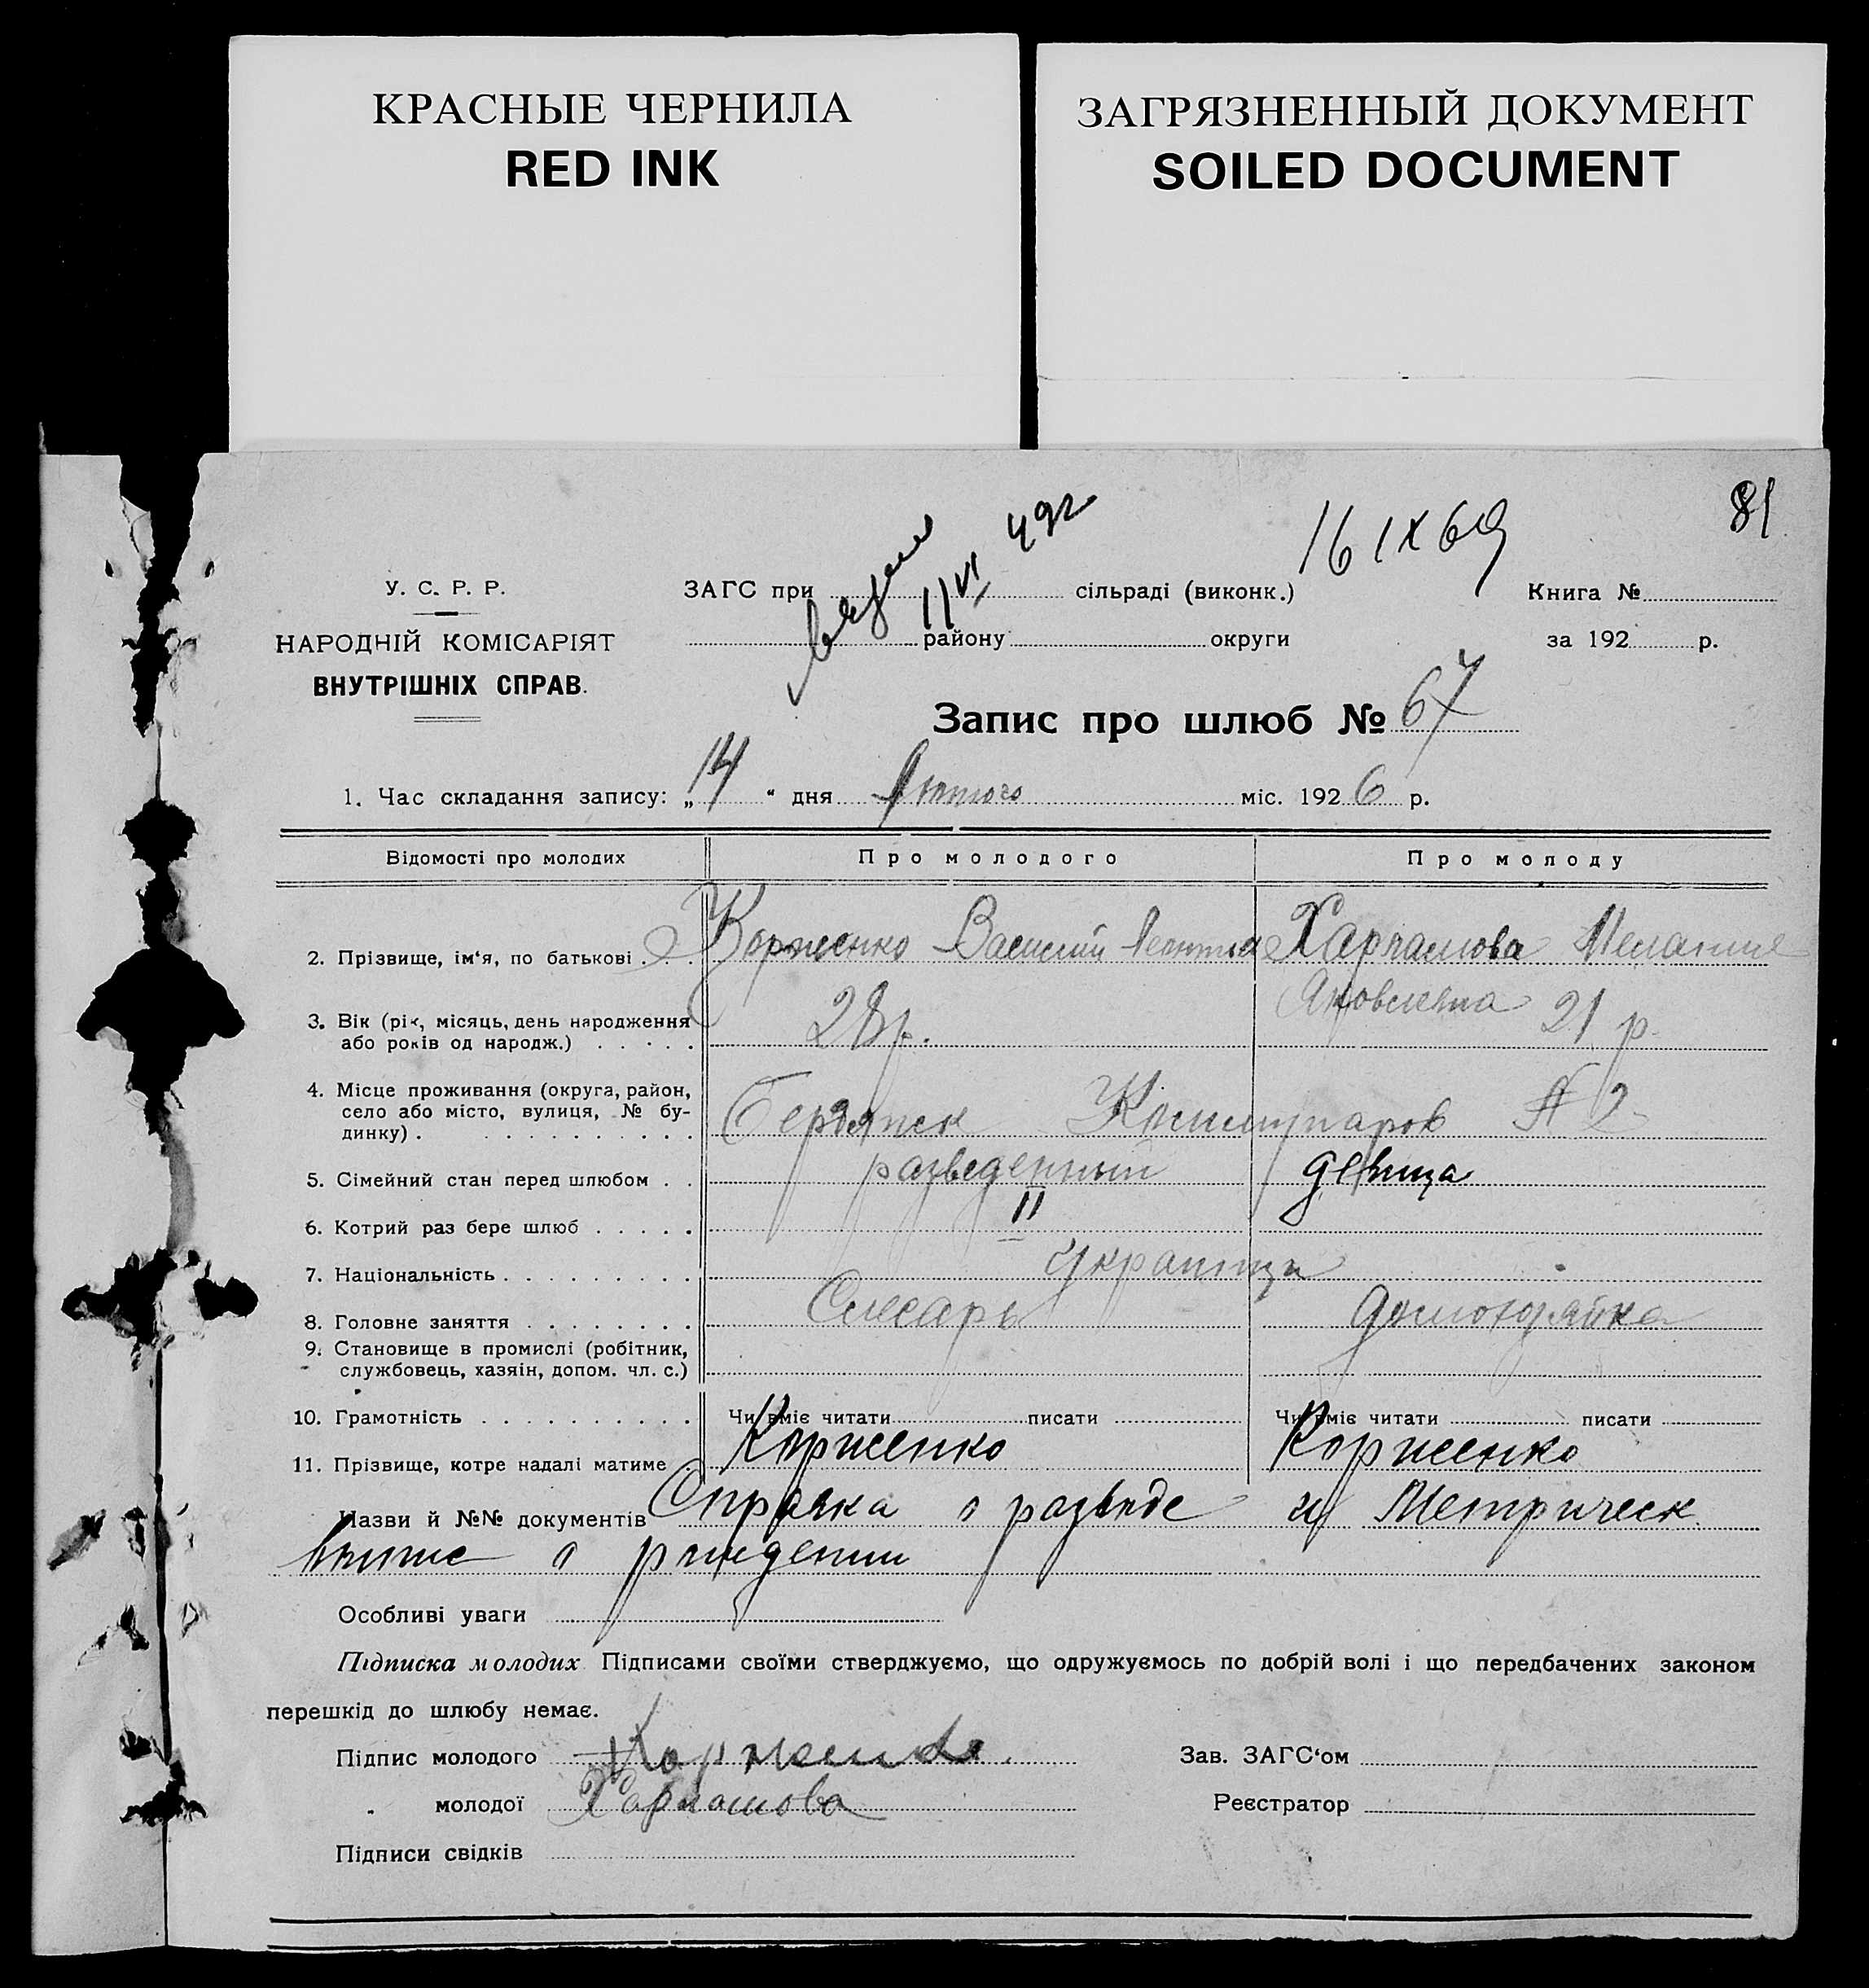 КРАСНЫЕ ЧЕРНИЛА
RED INK
ЗАГРЯЗНЕННЫЙ ДОКУМЕНТ
SOILED DOCUMENT
81
11 VI 49г
16 IX 69
У. С. Р. Р.
НАРОДНІЙ КОМІСАРІЯТ
ВНУТРІШНІХ СПРАВ.
ЗАГС при сільраді (виконк.)
району округи
Книга №
за 192 р.
Запис про шлюб № 67
1. Час складання запису: „14“ дня Лютого міс. 1926 р.
Відомості про молодих Про молодого Про молоду
2. Прізвище, ім‘я, по батькові . . . Корженко Василий Леонтьев Харлашова Мелания
Яковлевна
3. Вік (рік, місяць, день народження
або років од народж.) . . . . . 28 р. 21 р.
4. Місце проживання (округа, район,
село або місто, вулиця, № бу-
динку) . . . . . . . . . . . Бердянск Коммунаров № 2
5. Сімейний стан перед шлюбом . . разведенный девица
6. Котрий раз бере шлюб . . . . . II
7. Національність . . . . . . . . . Украинцы
8. Головне заняття . . . . . . . . Слесарь домохозяйка
9. Становище в промислі (робітник,
службовець, хазяін, допом. чл. с.)
10. Грамотність . . . . . . . . . . Чи вміє читати писати Чи вміє читати писати
11. Прізвище, котре надалі матиме . Корженко Корженко
Назви й №№ документів Справка о разводе и Метрическ.
о рождении
Особливі уваги
Підписка молодих Підписами своїми стверджуємо, що одружуємось по добрій волі і що передбачених законом
перешкід до шлюбу немає.
Підпис молодого Корженко. Зав. ЗАГС‘ом
„ молодої Харлашова Реєстратор
Підписи свідків